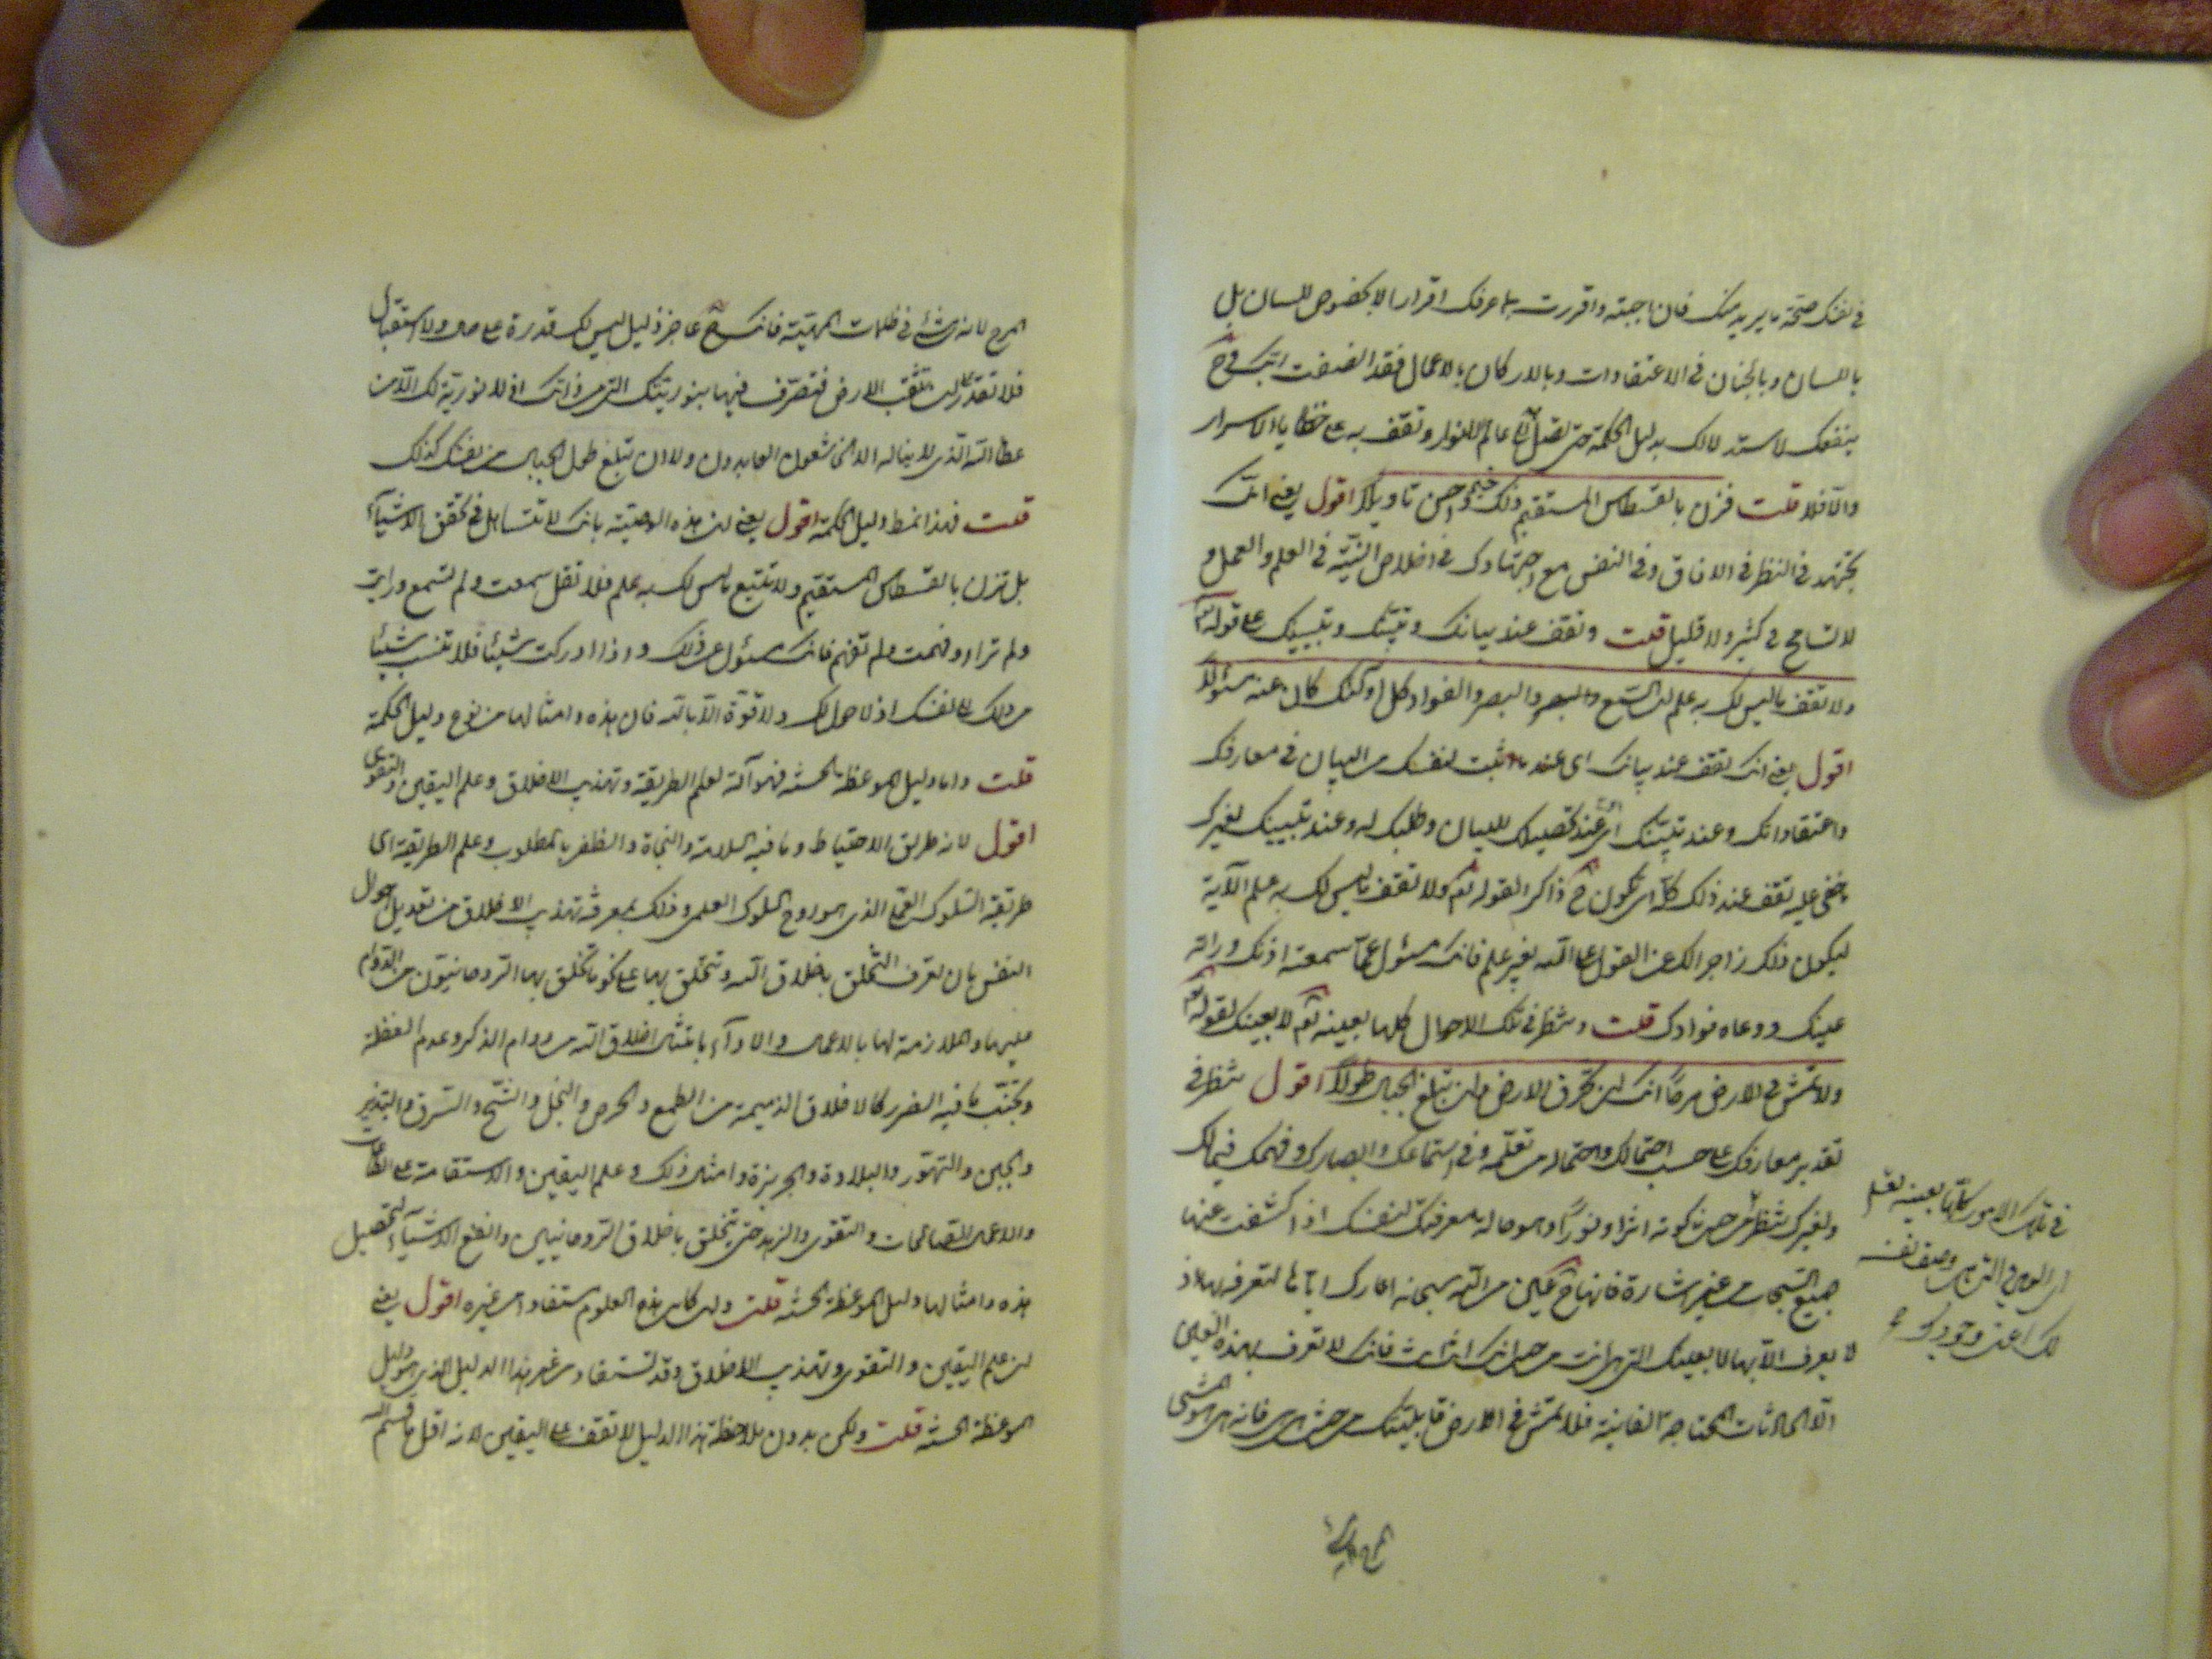 في نفسك صحة ما يريد منك فان اجبته واقررت بما عرفك اقرارا لا بخصوص اللسان بل
باللسان وبالجنان في الاعتقادات وبالاركان بالاعمال فقد انصفت ربك في ح
ينفعك لاستدلالك بدليل الحكمة حتى تصل الى عالم الانوار وتقف به على خفايا الاسرار
والا فلا قلت فزن بالقسطاس المستقيم ذلك خير واحسن تاويلا اقول يعنى انك
تجتهد في النظر في الافاق وفي النفس مع اجتهادك في اخلاص النية في العلم والعمل و
لا تسامح في كثير ولا قليل قلت وتقف عند بيانك وتبيّنك وتبيينك على قوله تع
ولا تقف ما ليس لك به علم ان السمع والبصر والبصر والفواد كل اولئك كان عنه مسئولا
اقول يعنى انك تقف عند بيانك اى عند ما يثبت لنفسك من البيان في معارفك
واعتقاداتك وعند تبيّنك اى عند تحصيلك للبيان وطلبك له وعند تبيينك لغيرك
يخفى عليه تقف عند ذلك كله اى تكون ح ذاكرا لقوله تع ولا تقف ما ليس لك به علم الآية
ليكون ذلك زاجرا لك عن القول على الله بغير علم فانك مسئول عما سمعته اذنك وراته
عينك ووعاه فوادك قلت وتنظر في تلك الاحوال كلها بعينه تع لا بعينك لقوله تع
ولا تمش في الارض مرحا انك لن تخرق الارض ولن تبلغ الجبال طولا اقول تنظر في
تقدير معارفك على حسب احتمالك واحتمال من تعلمه وفي استماعك وابصارك وفهمك فيما لك
ولغيرك تنظر من حيث كونه اثرا ونورا وهو حاله معرفتك لنفسك اذا كشفت عنها
جميع السبحات من غير اشارة فانها ح عين من الله سبحانه اعارك اياها لتعرفه بها اذ
لا يعرف الا بها لا بعينك التى هى انت من حيث انك انت فانك لا تعرف بهذه العين
الا الحادثات المحتاجة الفانية فلا تمش في الارض قابليتك من حيث هى هى فانه هو المشى
في تلك الامور كلها بعينه تعلم
لك اعنى وجودك
المرح لانه مشى في ظلمات المهية فانك ح عاجز ذليل ليس لك قدرة على ولا استقبال
فلا تقدر ان تثقب الارض فتصرف فيها بنوريتك التى من ذاتك اذ لا نورية لك الا من
عطاء الله الذى لا يناله الا الخاشعون العابدون ولا ان تبلغ طول الجبال من نفسك كذلك
قلت فهذا نمط دليل الحكمة اقول يعنى ان هذه الوصية بانك لا تتساهل في تحقق الاشياء
بل تزن بالقسطاس المستقيم ولا تتبع ما ليس لك به علم فلا تقل سمعت ولم تسمع ورايت
ولم تر او فهمت ولم تفهم فانك مسئول عن ذلك واذا ادركت شيئا فلا تنسب شيئا
من ذلك الى نفسك اذ لا حول لك ولا قوة الا بالله فان هذه وامثالها من نوع دليل الحكمة
قلت واما دليل الموعظة الحسنة فهو آلة لعلم الطريقة وتهذيب الاخلاق وعلم اليقين والتقوى
اقول لانه طريق الاحتياط وما فيه السلامة والنجاة والظفر بالمطلوب وعلم الطريقة اى
طريقة السلوك العملى الذى هو روح السلوك العلمى وذلك بمعرفة تهذيب الاخلاق من تعديل احوال
النفس بان تعرف التخلق باخلاق الله وتتخلق بها على نحو ما تخلق بها الروحانيون من القوام
عليها والملازمة لها بالاعمال والاداء بامتثال اخلاق الله من دوام الذكر وعدم الغفلة
وتجنب ما فيه الضرر كالاخلاق الذميمة من الطمع والحرص والبخل والشح والسرف والتبذير
والجبن والتهور والبلادة والجربزة وامثال ذلك وعلم اليقين والاستقامة على الطاعات
والاعمال الصالحات والتقوى والزهد حتى تتخلق باخلاق الروحانيين وانفع الاشياء لتحصيل
هذه وامثالها دليل الموعظة الحسنة قلت وان كان هذه العلوم تستفاد من غيره اقول يعنى
ان علم اليقين والتقوى وتهذيب الاخلاق وقد تستفاد من غير هذا الدليل الذى هو دليل
الموعظة الحسنة قلت ولكن بدون ملاحظة هذا الدليل لا تقف على اليقين لانه اقل ما قسم الله